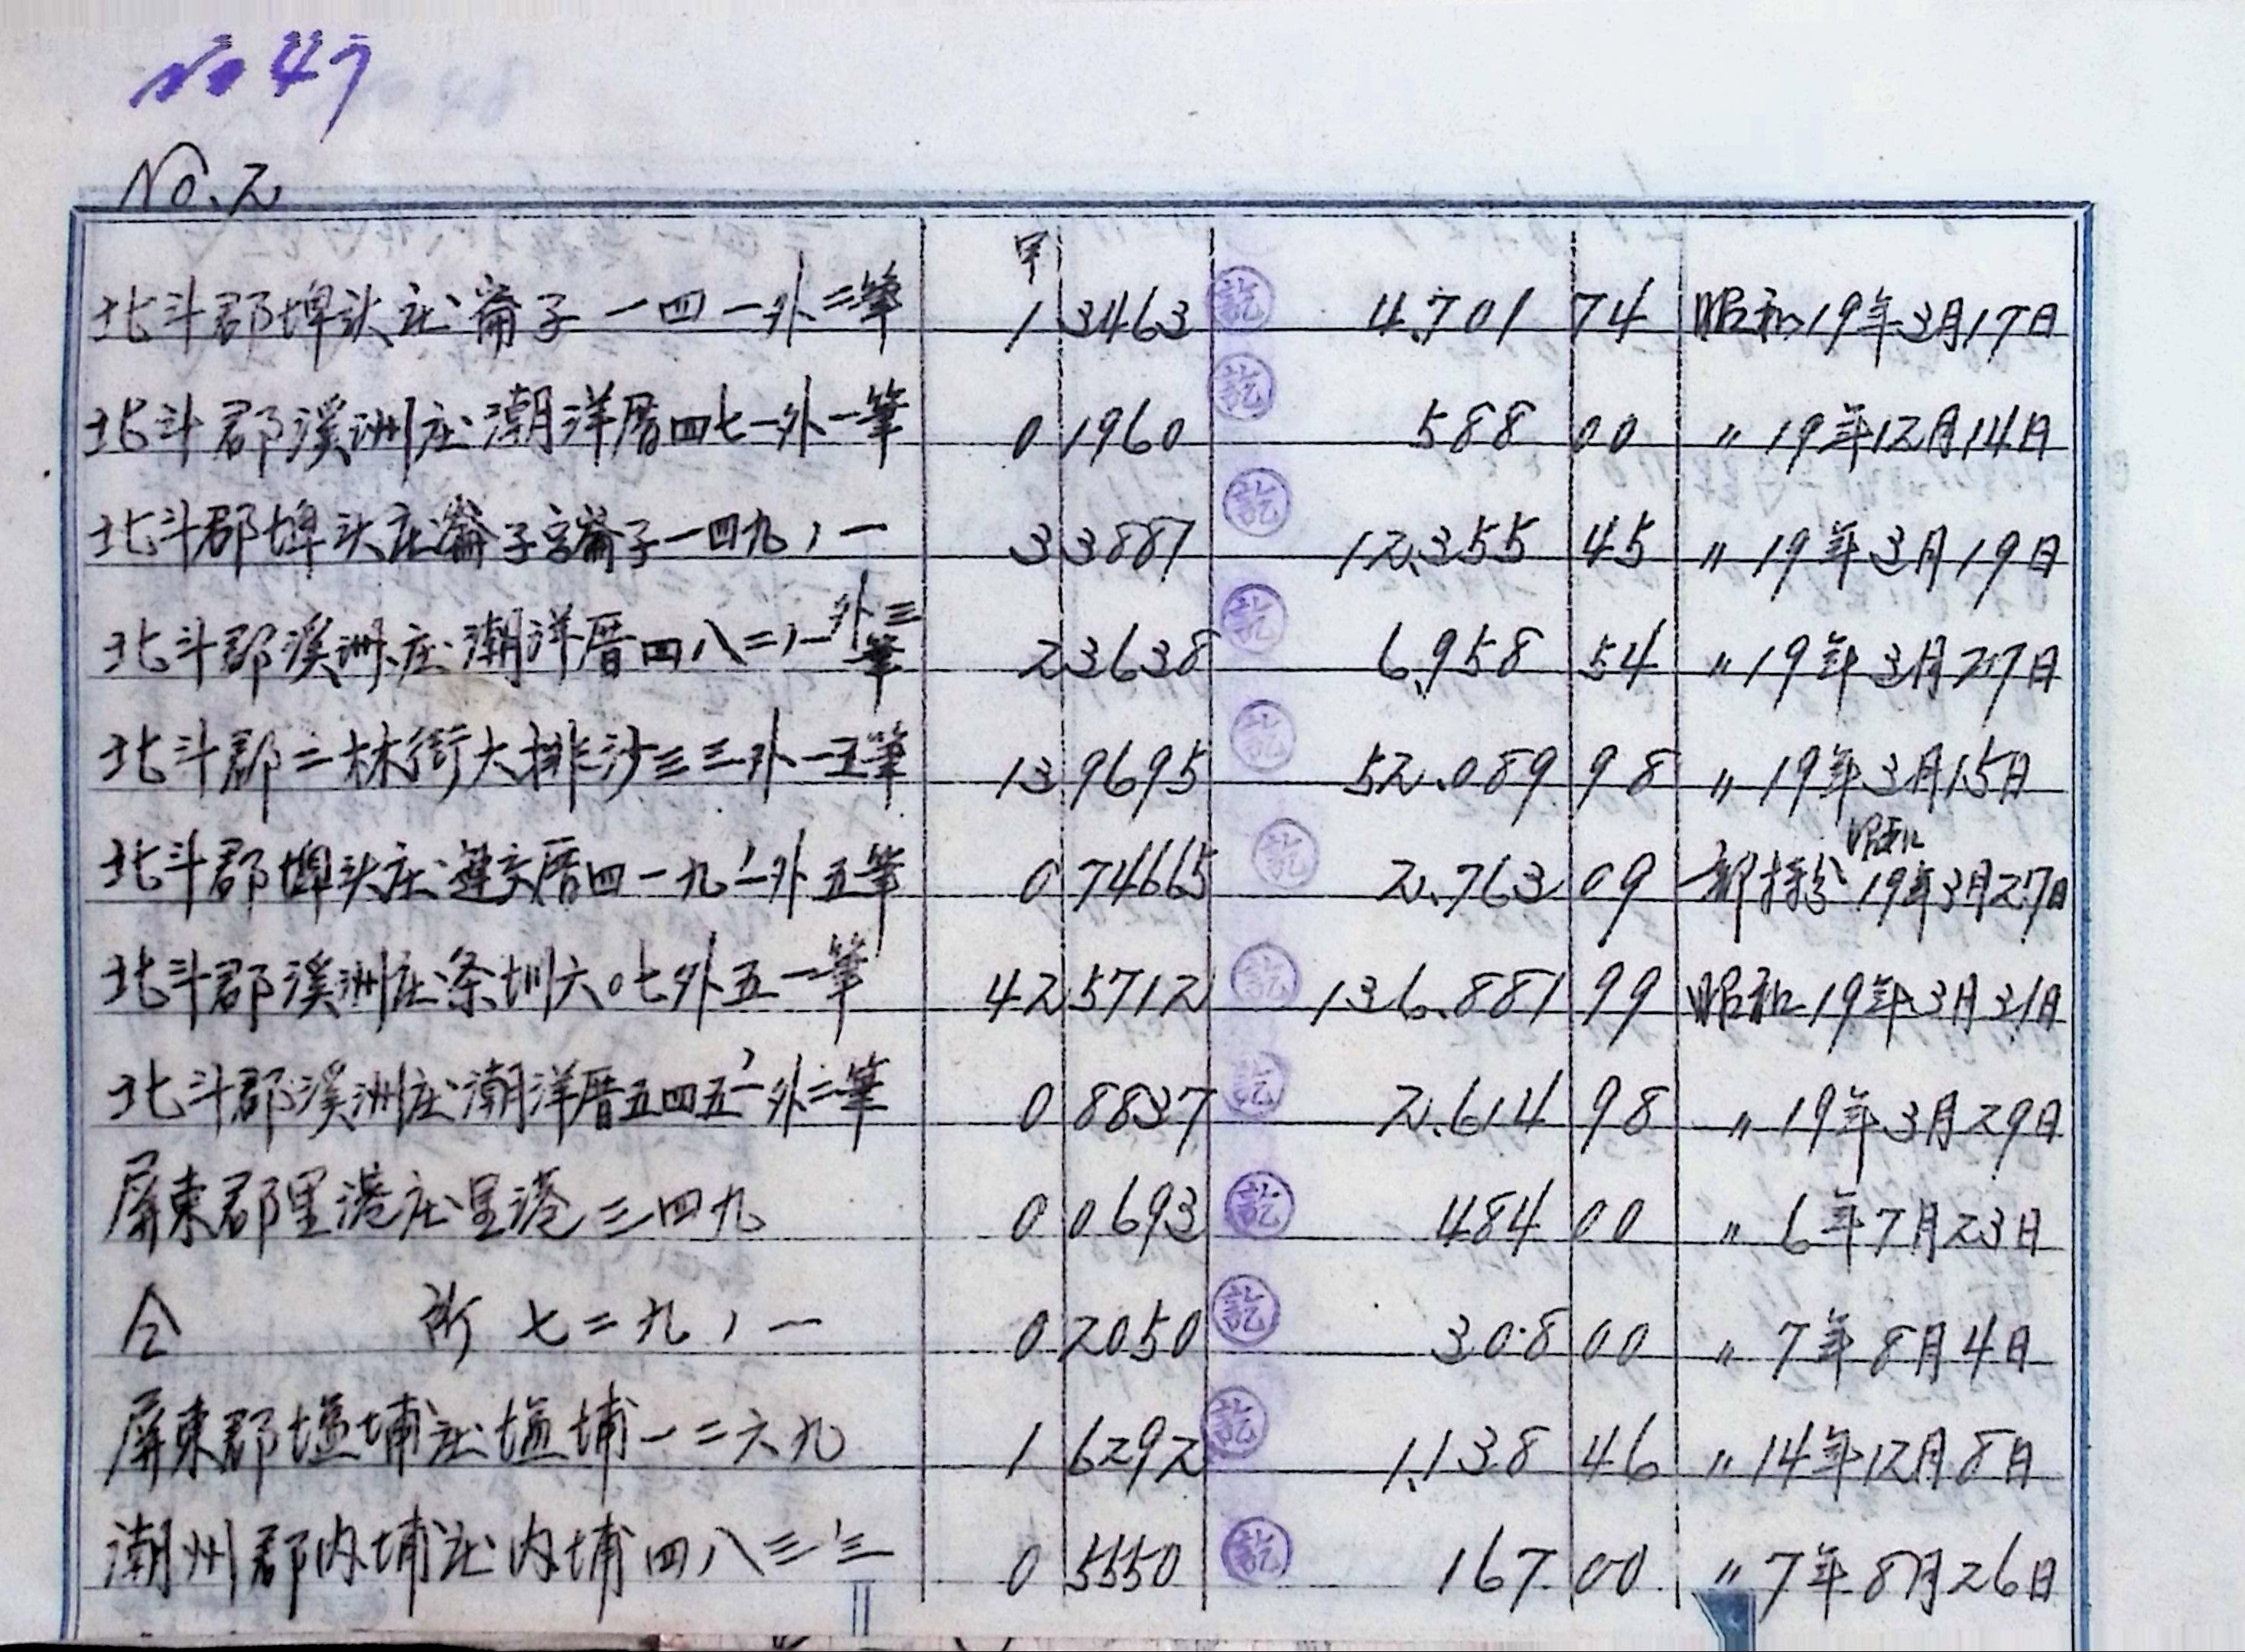 No 47
No.2
甲
北斗郡埤头庄崙子一四一外二筆 1 3463 訖 4.701 74 昭和19年3月17日
北斗郡溪洲庄潮洋厝四七一外一筆 0 1960 訖 588 00 〃19年12月14日
北斗郡埤头庄崙子字崙子一四九,一 3 3887 訖 12.355 45 〃19年3月19日
北斗郡溪洲庄潮洋厝四八二,一外三筆 2 3638 訖 6.958 54 〃19年3月27日
北斗郡二林街大排沙三三外一五筆 13 9695 訖 52.089 98 〃19年3月15日
北斗郡埤头庄連交厝四一九,一外五筆 0 74665 訖 2.763 09 昭和19年3月27日
北斗郡溪洲庄条圳六〇七外五一筆 42 5712 訖 136.881 99 昭和19年3月31日
北斗郡溪洲庄潮洋厝五四五,一外二筆 0 8837 訖 2.614 98 〃19年3月29日
屏東郡里港庄里港三四九 0 0693 訖 484 00 〃6年7月23日
仝 所 七二九,一 0 2050 訖 308 00 〃7年8月4日
屏東郡塩埔庄塩埔一二六九 1 6292 訖 1.138 46 〃14年12月8日
潮州郡内埔庄内埔四八三,三 0 5550 訖 167 00 〃7年8月26日